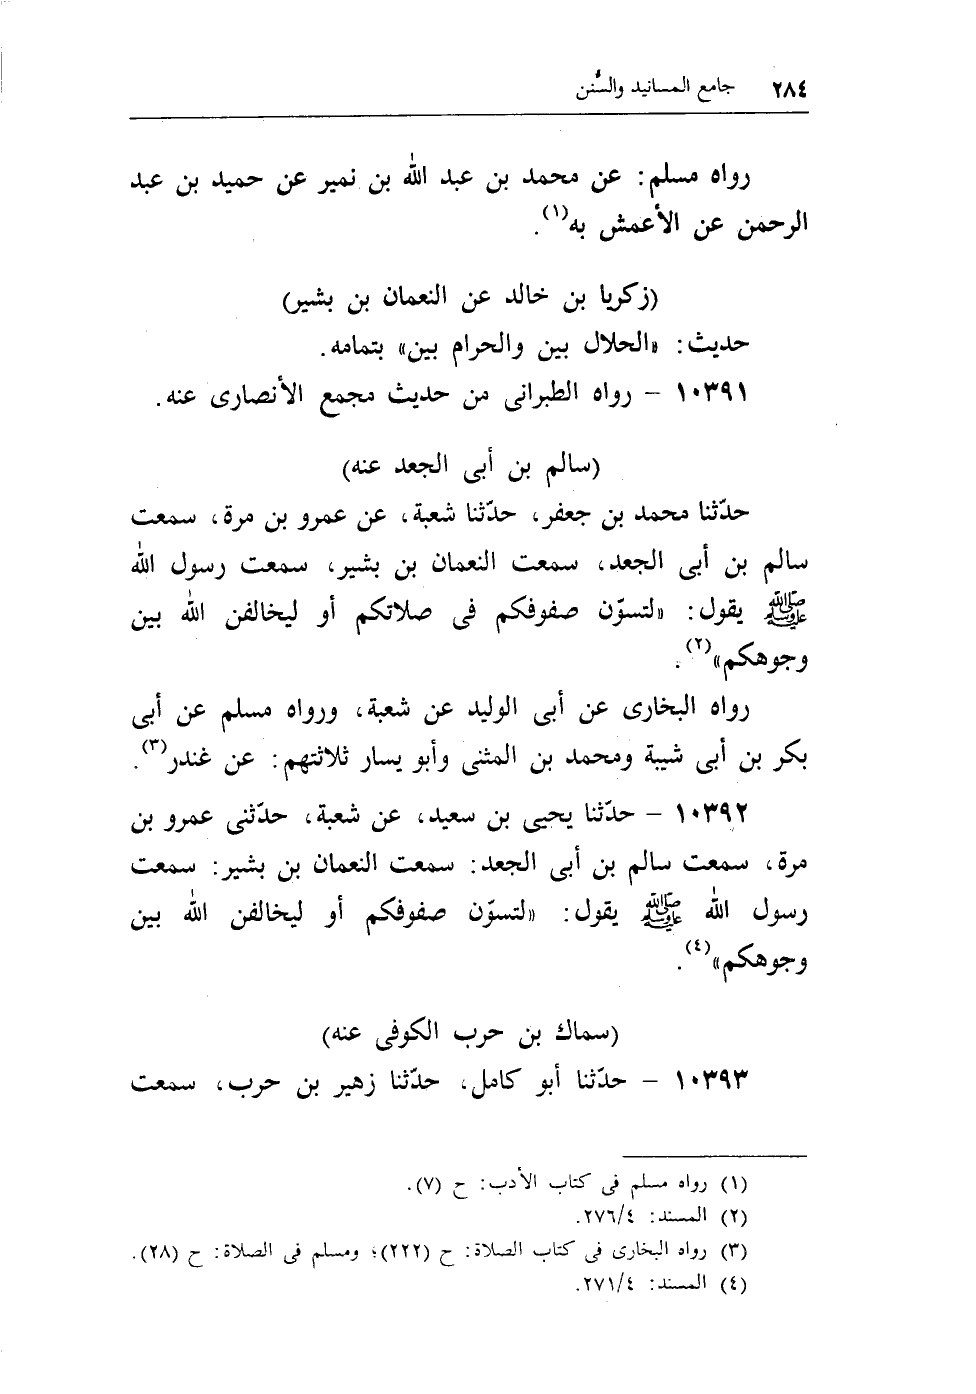 ٢٨٤ جامع المسانيد والسُّنن
رواه مسلم: عن محمد بن عبد الله بن نمير عن حميد بن عبد
الرحمن عن الأعمش به(١).
(زكريا بن خالد عن النعمان بن بشير)
حديث: «الحلال بين والحرام بين» بتمامه.
١٠٣٩١ – رواه الطبرانى من حديث مجمع الأنصارى عنه.
(سالم بن أبى الجعد عنه)
حدّثنا محمد بن جعفر، حدّثنا شعبة، عن عمرو بن مرة، سمعت
سالم بن أبى الجعد، سمعت النعمان بن بشير، سمعت رسول الله
ﷺ يقول: «لتسوّن صفوفكم فى صلاتكم أو ليخالفن الله بين
وجوهكم»(٢).
رواه البخارى عن أبى الوليد عن شعبة، ورواه مسلم عن أبى
بكر بن أبى شيبة ومحمد بن المثنى وأبو يسار ثلاثتهم: عن غندر(٣).
١٠٣٩٢ – حدّثنا يحيى بن سعيد، عن شعبة، حدّثنى عمرو بن
مرة، سمعت سالم بن أبى الجعد: سمعت النعمان بن بشير: سمعت
رسول الله ﷺ يقول: «لتسوّن صفوفكم أو ليخالفن الله بين
وجوهكم»(٤).
(سماك بن حرب الكوفى عنه)
١٠٣٩٣ – حدّثنا أبو كامل، حدّثنا زهير بن حرب، سمعت
(١) رواه مسلم فى كتاب الأدب: ح (٧).
(٢) المسند: ٢٧٦/٤.
(٣) رواه البخارى فى كتاب الصلاة: ح (٢٢٢)؛ ومسلم فى الصلاة: ح (٢٨).
(٤) المسند: ٢٧١/٤.